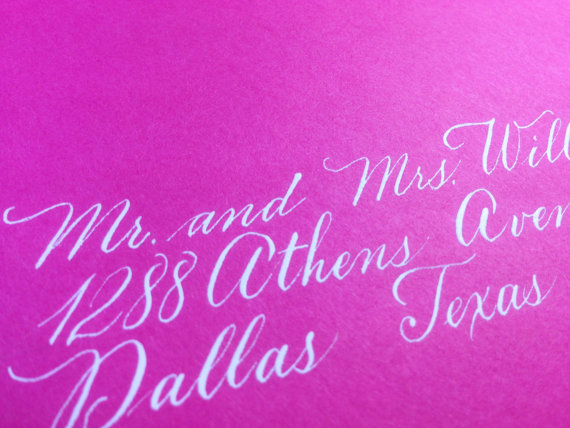 Mr. and Mrs. Will
1288 Athens Aven
Dallas Texas